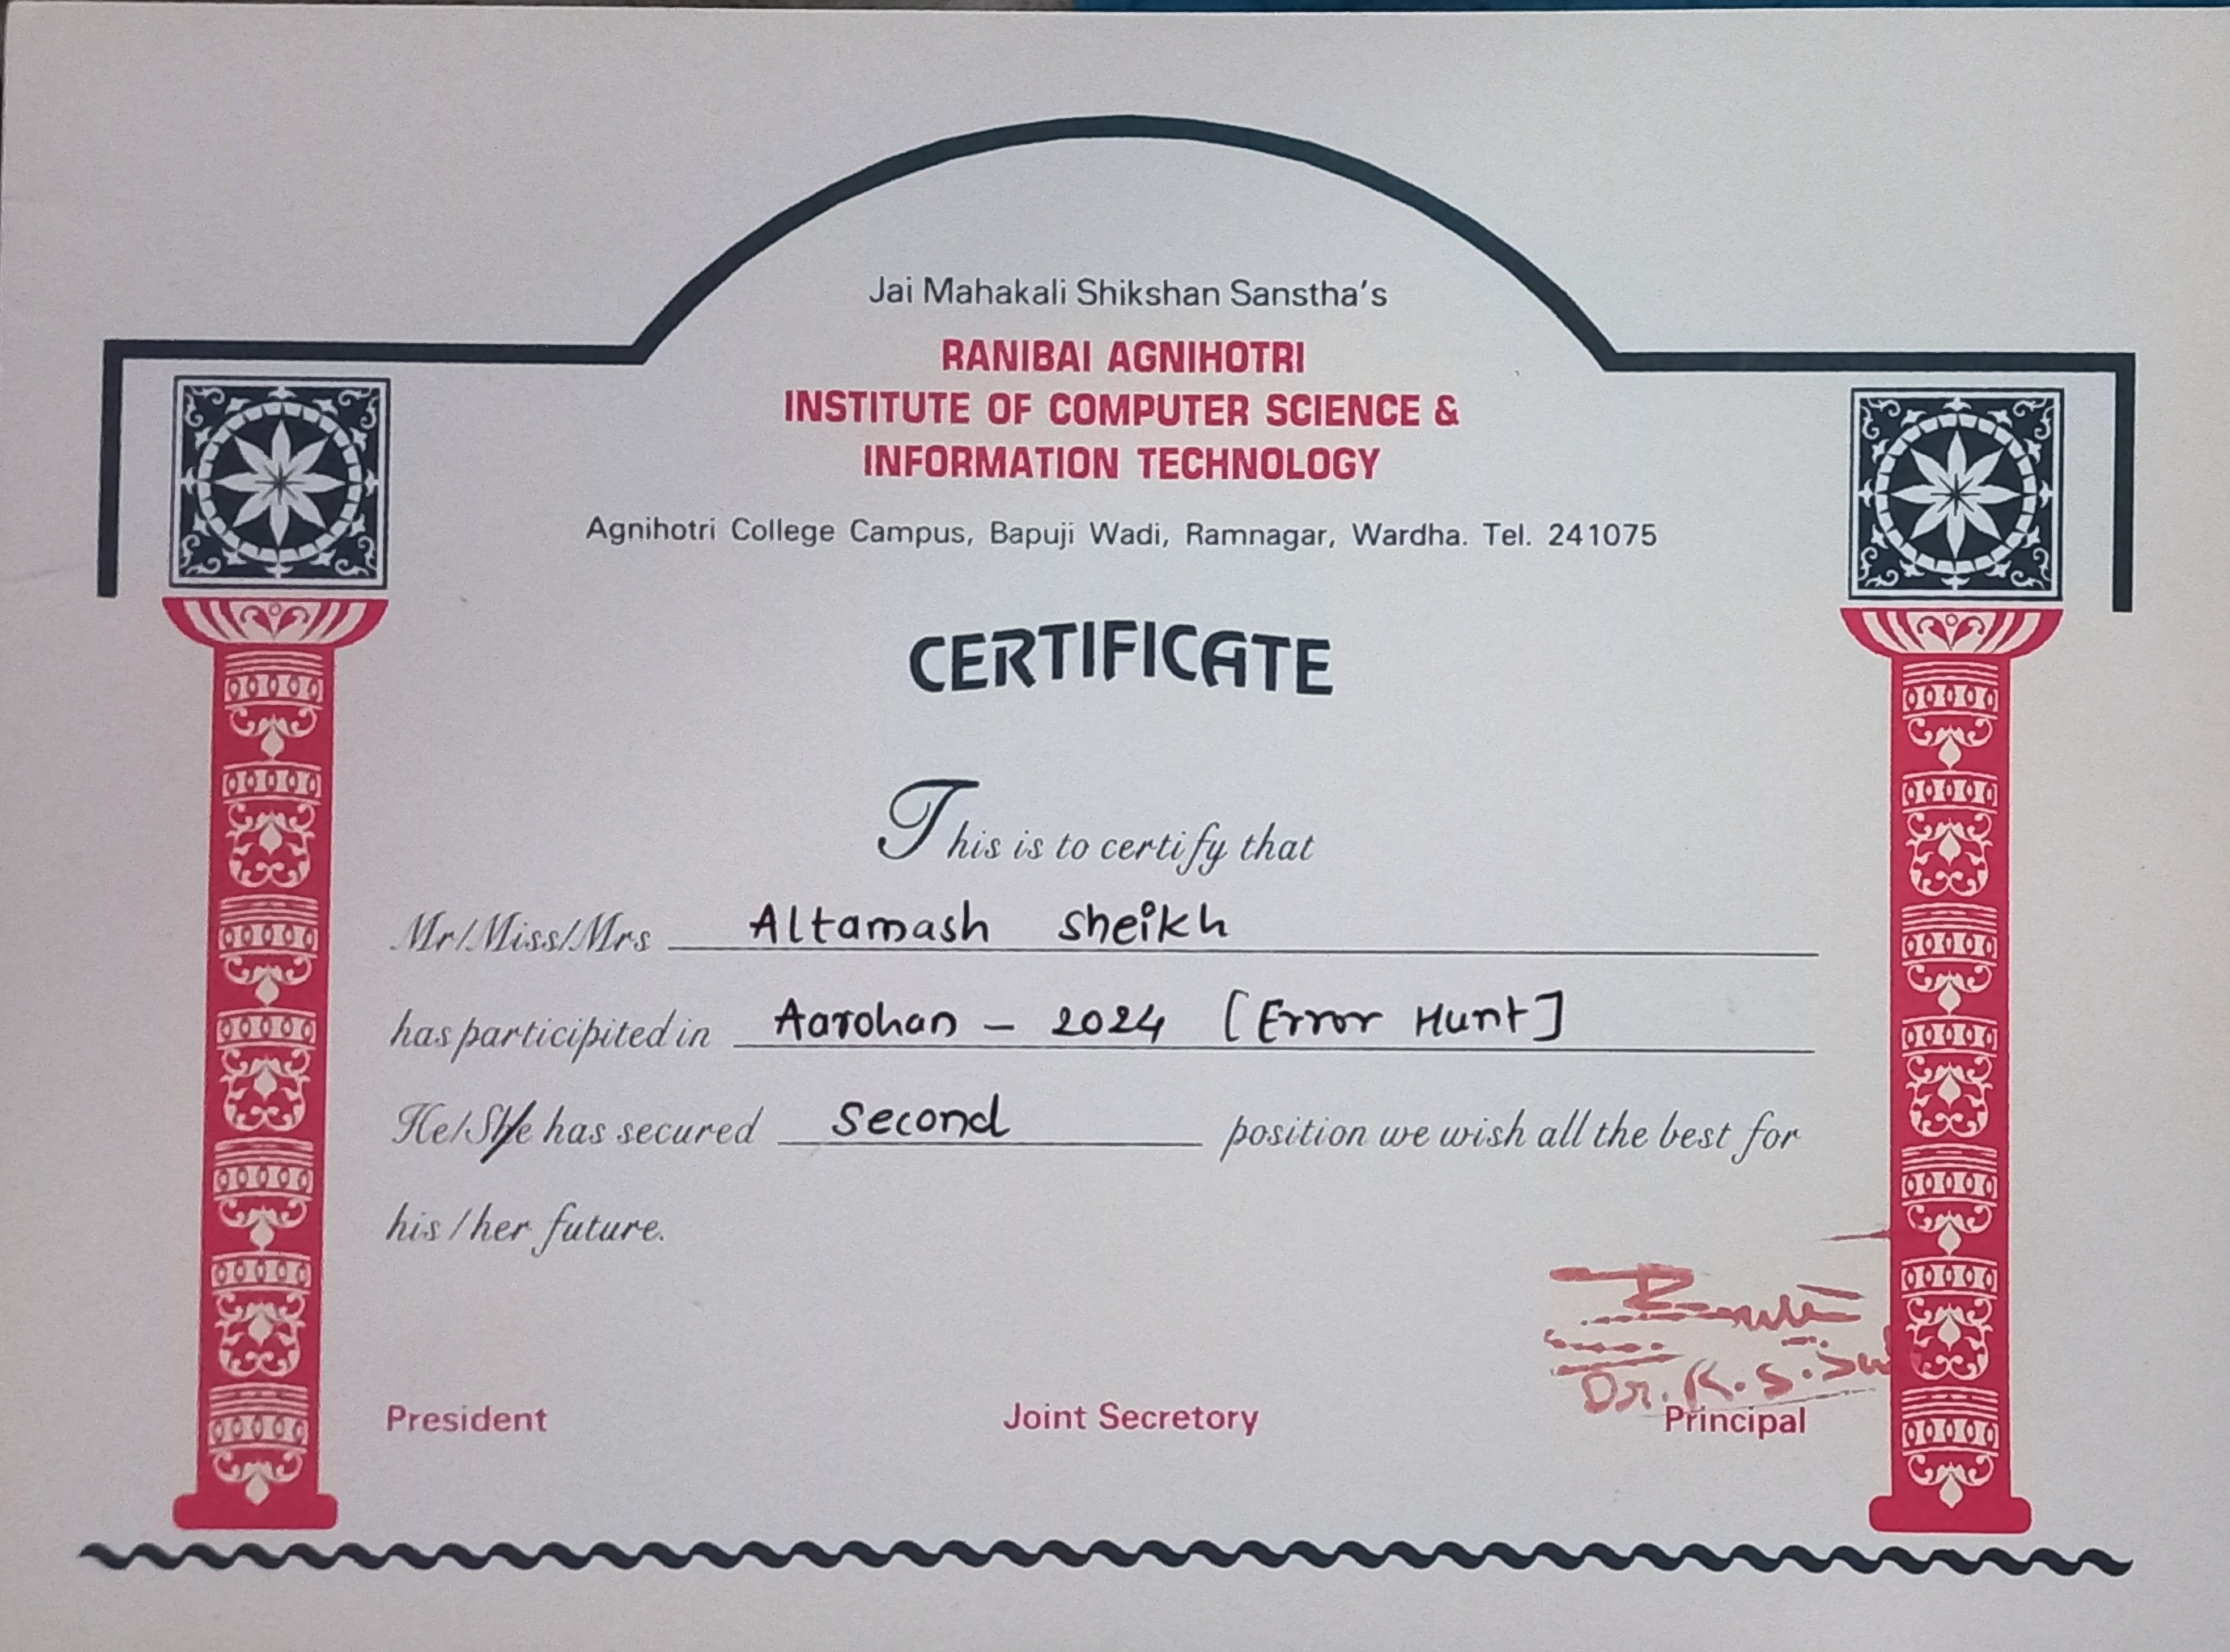 Jai Mahakali Shikshan Sanstha's
RANIBAI AGNIHOTRI
INSTITUTE OF COMPUTER SCIENCE &
INFORMATION TECHNOLOGY
Agnihotri College Campus, Bapuji Wadi, Ramnagar, Wardha. Tel. 241075
CERTIFICATE
This is to certify that
Mr/Miss/Mrs Altamash Sheikh
has participited in Aarohan - 2024 [Error Hunt]
He/She has secured Second position we wish all the best for
his / her future.
Dr. R. S.
President Joint Secretory Principal